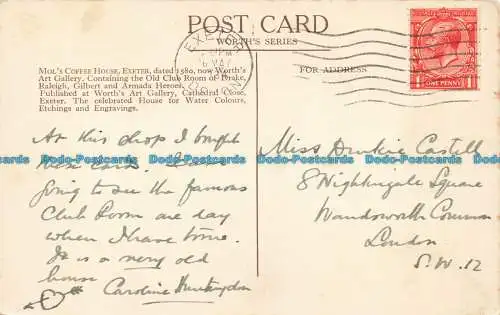 POST CARD
WORTH'S SERIES
MOL'S COFFEE HOUSE, EXETER, dated 1580, now Worth's
Art Gallery. Containing the Old Club Room of Drake,
Raleigh, Gilbert and Armada Heroes.
Published at Worth's Art Gallery, Cathedral Close,
Exeter. The celebrated House for Water Colours,
Etchings and Engravings.
FOR ADDRESS
EXETER
ONE PENNY
At this shop I bought
these cards. I am
going to see the famous
Club Room one day
when I have time.
It is a very old
house
Caroline Huntingdon
Miss Castell
8 Nightingale Square
Wandsworth Common
London
S.W. 12
Postcards-Docards